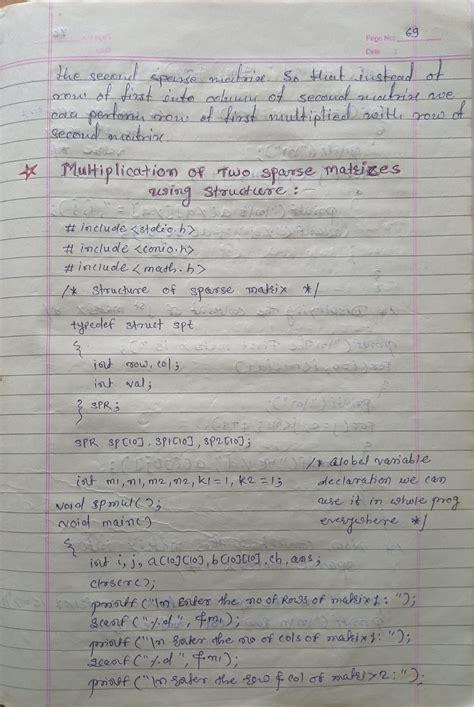 Page No: 69
Date :
the second sparse matrix. So that instead of
row of first into column of second matrix we
can perform row of first multiplied with row of
second matrix.
☆ Multiplication of Two sparse matrizes
using structure :-
# include <stdio.h>
# include <conio.h>
# include <math.h>
/* structure of sparse matrix */
typedef struct spt
{
int row, col;
int val;
} SPR;
SPR SP[10], SP1[10], SP2[10];
/* Global variable
int m1, n1, m2, n2, k1=1, k2=1; declaration we can
void spmul(); use it in whole prog
void main() everywhere */
{
int i, j, a[10][10], b[10][10], ch, ans;
clrscr();
printf ("\n Enter the no of Rows of matrix 1: ");
scanf ("%d", &m1);
printf ("\n Enter the no of cols of matrix 1: ");
scanf ("%d", &m1);
printf ("\n Enter the row & col of matrix 2: ");